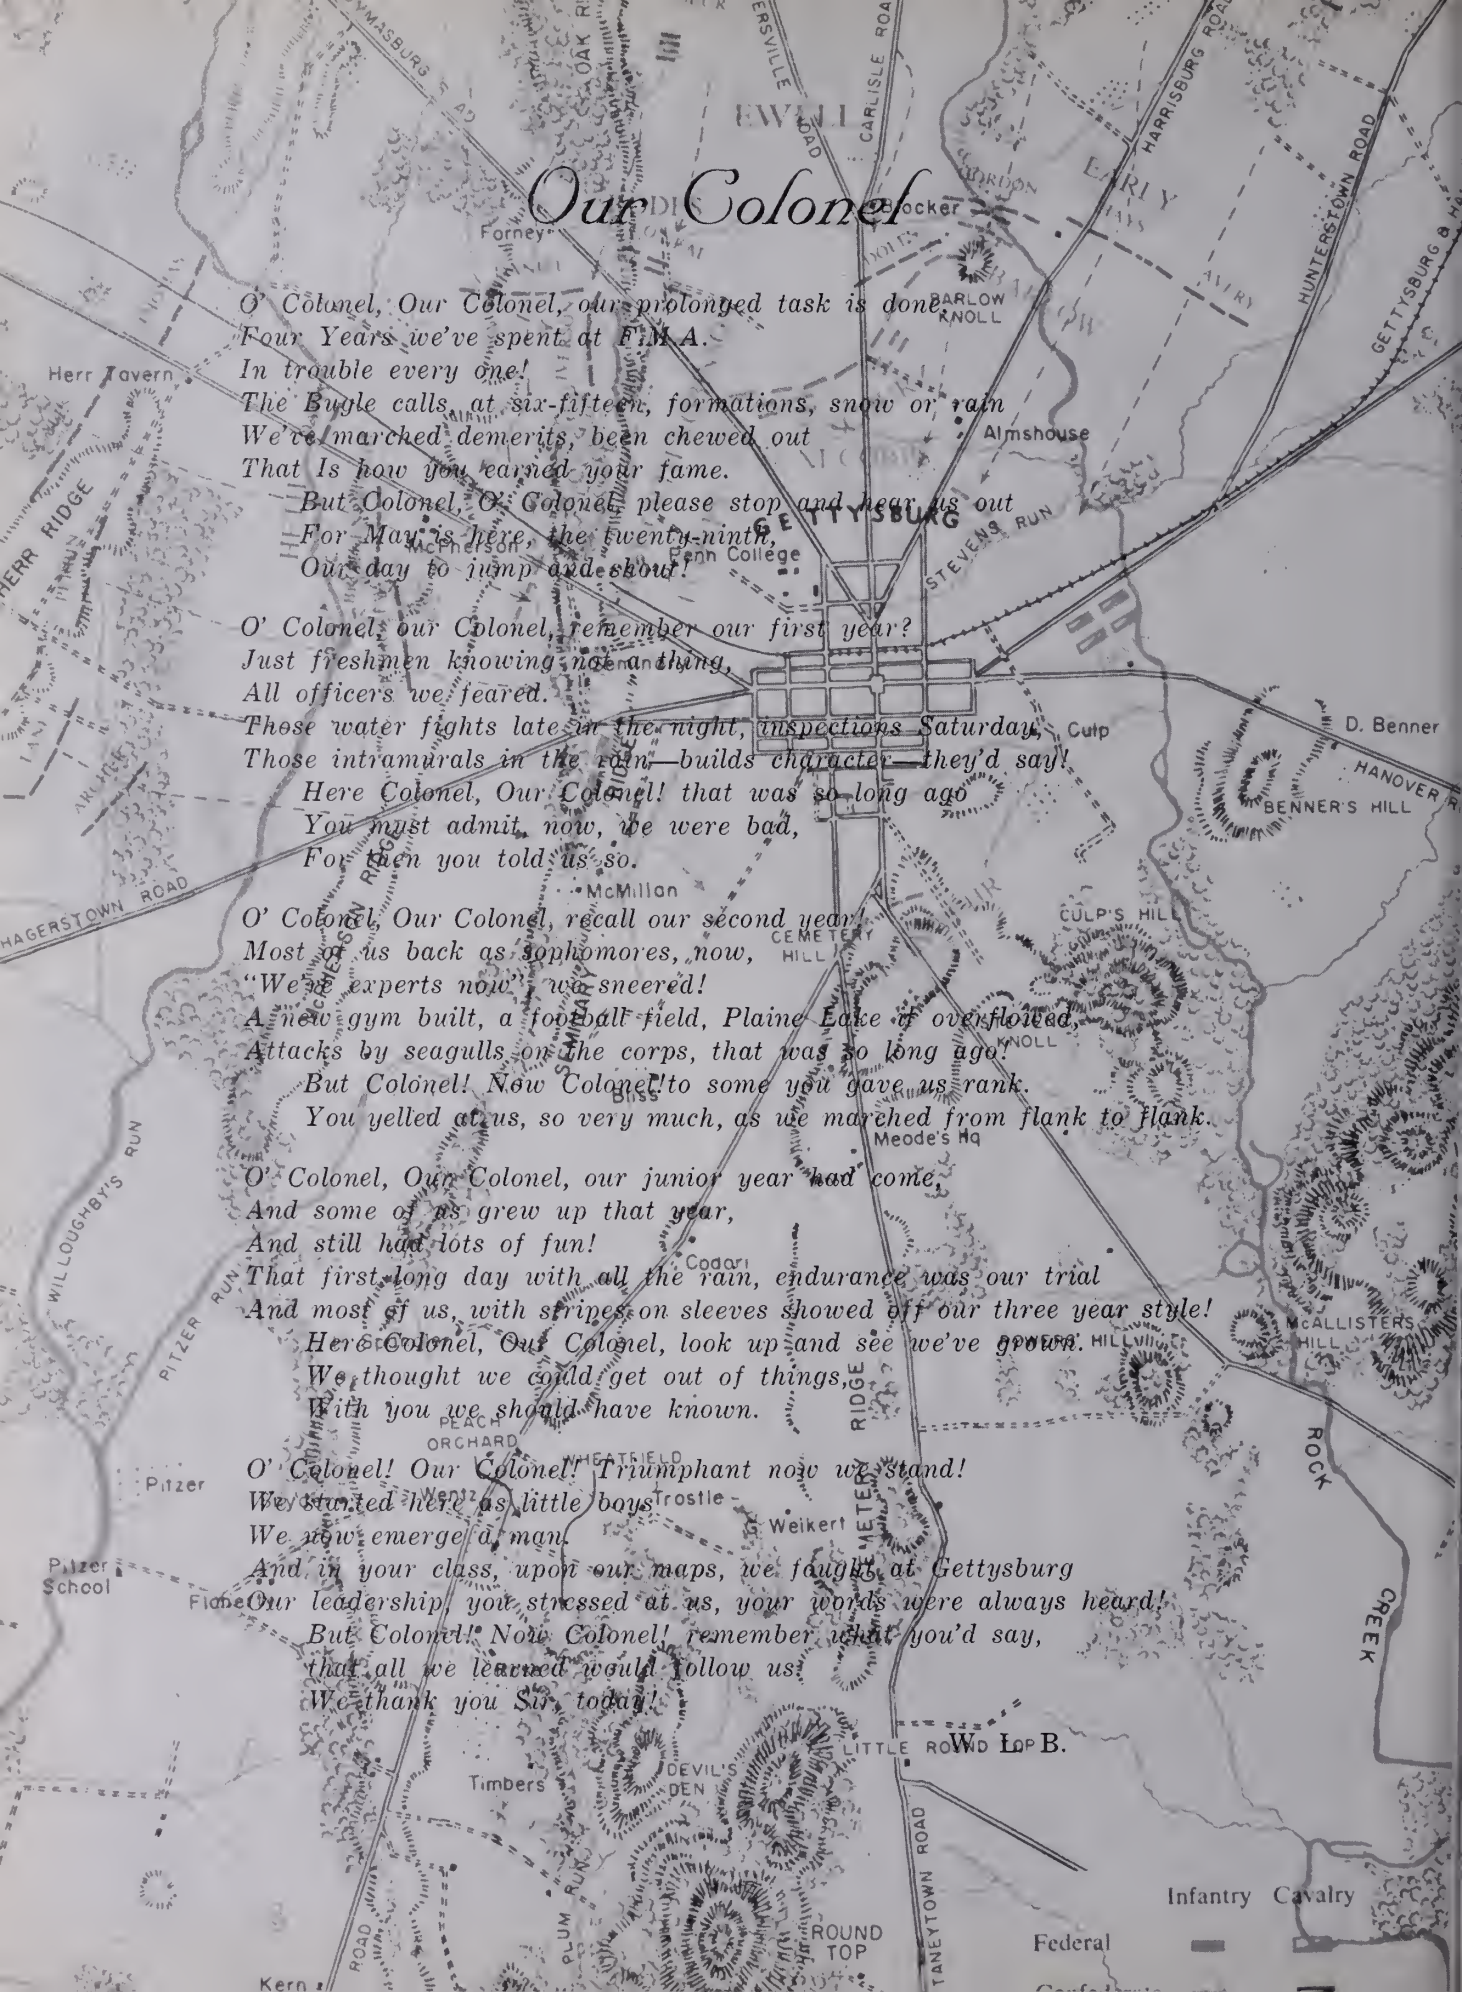 Our Colonel
O' Colonel, Our Colonel, our prolonged task is done,
Four Years we've spent at F.M.A.
In trouble every one!
The Bugle calls at six-fifteen, formations, snow or rain
We've marched demerits, been chewed out
That Is how you earned your fame.
But Colonel, O' Colonel, please stop and hear us out
For May is here, the twenty-ninth,
Our day to jump and shout!
O' Colonel, our Colonel, remember our first year?
Just freshmen knowing not a thing,
All officers we feared.
Those water fights late in the night, inspections Saturday,
Those intramurals in the rain—builds character—they'd say!
Here Colonel, Our Colonel! that was so long ago
You must admit, now, we were bad,
For then you told us so.
O' Colonel, Our Colonel, recall our second year!
Most of us back as sophomores, now,
"We're experts now", we sneered!
A new gym built, a football field, Plaine Lake it overflowed,
Attacks by seagulls on the corps, that was so long ago!
But Colonel! Now Colonel! to some you gave us rank.
You yelled at us, so very much, as we marched from flank to flank.
O' Colonel, Our Colonel, our junior year had come,
And some of us grew up that year,
And still had lots of fun!
That first long day with all the rain, endurance was our trial
And most of us, with stripes on sleeves showed off our three year style!
Here Colonel, Our Colonel, look up and see we've grown.
We thought we could get out of things,
With you we should have known.
O' Colonel! Our Colonel! Triumphant now we stand!
We started here as little boys
We now emerge a man.
And in your class, upon our maps, we fought at Gettysburg
Our leadership, you stressed at us, your words were always heard!
But Colonel! Now Colonel! remember what you'd say,
that all we learned would follow us
We thank you Sir, today!
W. L. B.
OAK
CARLISLE ROAD
HARRISBURG ROAD
HUNTERSTOWN ROAD
GETTYSBURG &
EWELL
EARLY
HAYS
AVERY
GORDON
DOLES
Blocker
Forney
BARLOW
KNOLL
Herr Tavern
Almshouse
HERR RIDGE
GETTYSBURG
STEVENS RUN
McPherson
Penn College
Seminary
Culp
D. Benner
HANOVER
BENNER'S HILL
ARCHER
McPHERSON RIDGE
HAGERSTOWN ROAD
McMillan
CULP'S HILL
CEMETERY
HILL
SEMINARY RIDGE
KNOLL
Bliss
Meade's Hq
WILLOUGHBY'S RUN
PITZER RUN
Codori
POWERS' HILL
McALLISTERS
HILL
PEACH
ORCHARD
WHEATFIELD
CEMETERY RIDGE
ROCK CREEK
Pitzer
Wentz
Trostle
Weikert
Pitzer
School
LITTLE ROUND TOP
Timbers
DEVIL'S
DEN
PLUM RUN
ROUND
TOP
TANEYTOWN ROAD
ROAD
Kern
Infantry Cavalry
Federal